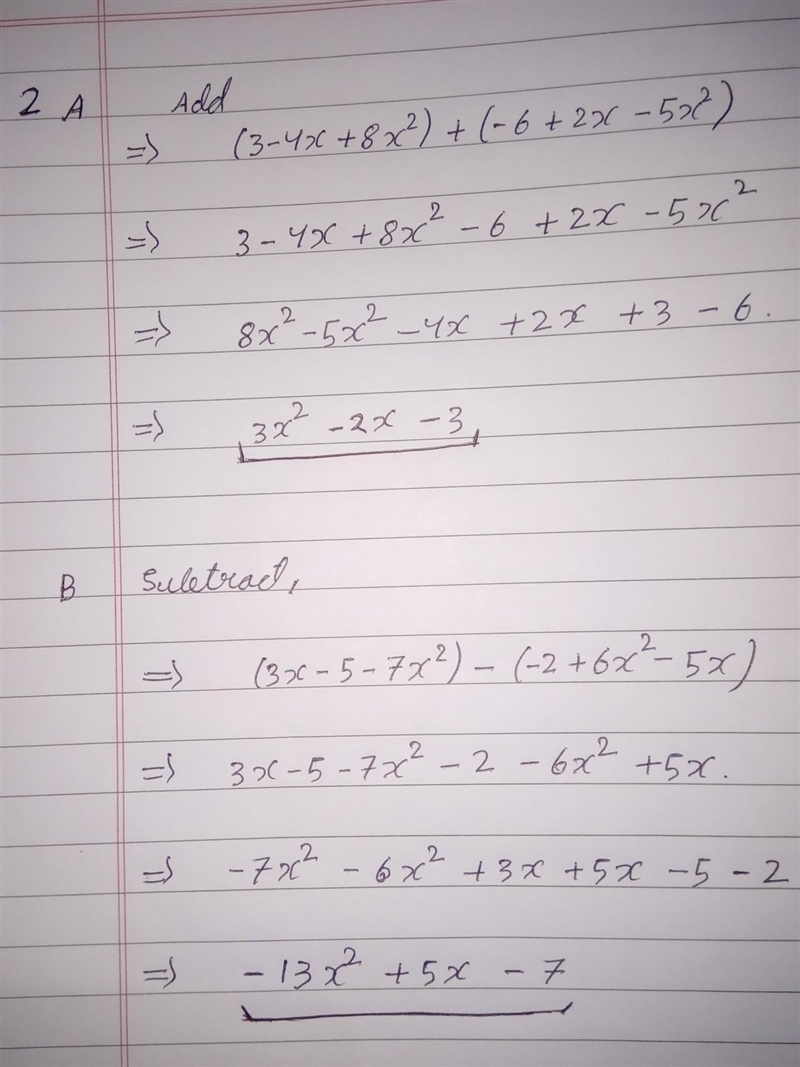 2 A Add
=> (3-4x+8x²)+(-6+2x-5x²)
=> 3-4x+8x²-6+2x-5x²
=> 8x²-5x²-4x+2x+3-6.
=> 3x²-2x-3
B Subtract,
=> (3x-5-7x²)-(-2+6x²-5x)
=> 3x-5-7x²-2-6x²+5x.
=> -7x²-6x²+3x+5x-5-2
=> -13x²+5x-7